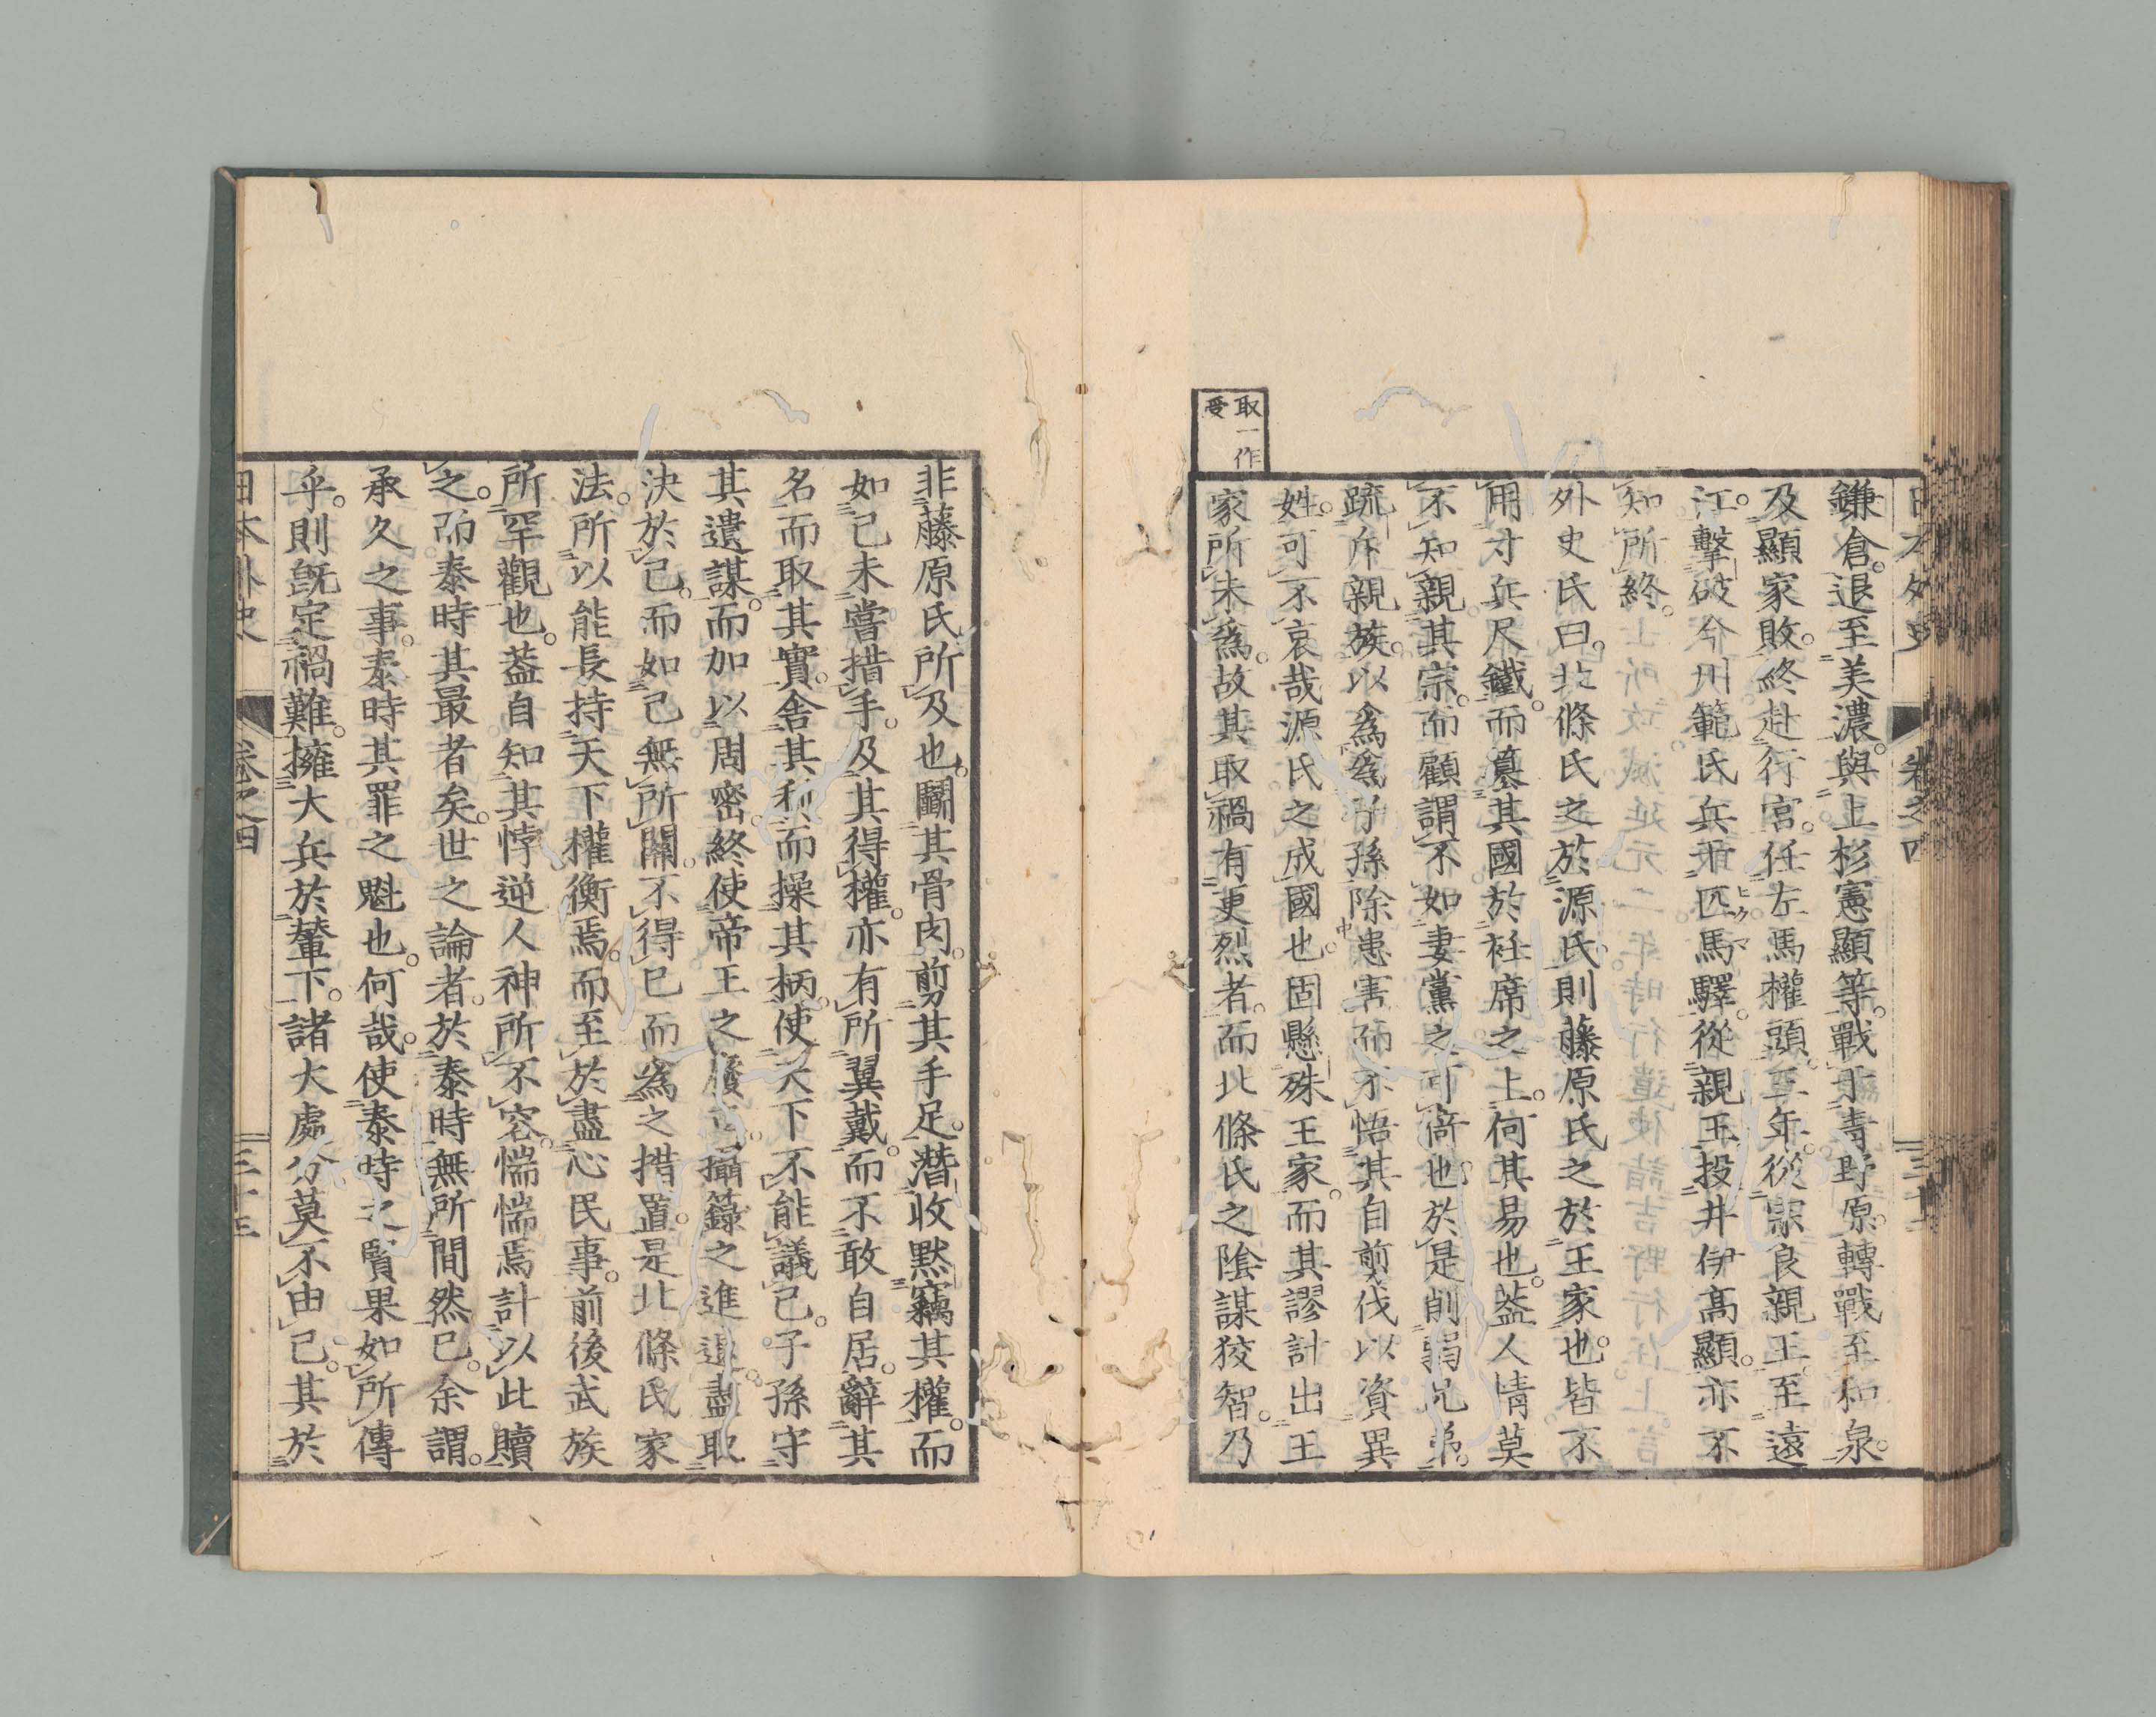 取一作
受
鎌倉。退至美濃。與上杉憲顯等。戰于青野原。轉戰至和泉。
及顯家敗。終赴行宮。任左馬權頭。至年。從宗良親王。至遠
江。擊破今川範氏兵于匹馬驛。從親王投井伊高顯。亦不
知所終。
外史氏曰。北條氏之於源氏。則藤原氏之於王家也。皆不
用寸兵尺鐵。而簒其國於衽席之上。何其易也。葢人情莫
不知親其宗。而顧謂不如妻黨之可倚也。於是削弱兄弟。
疏斥親族。以爲爲子孫除患害而不悟其自剪伐以資異
姓。可不哀哉源氏之成國也。固懸殊王家。而其謬計出王
家所未爲。故其取禍有更烈者。而北條氏之陰謀狡智。乃
日本外史 卷之四
非藤原氏所及也。鬭其骨肉。剪其手足。潛收默竊其權。而
如己未嘗措手。及其得權。亦有所翼戴。而不敢自居。辭其
名而取其實。舍其利而操其柄。使天下不能議己。子孫守
其遺謀。而加以周密。終使帝王之廢立。攝籙之進退。盡取
決於己。而如己無所關。不得已而為之措置。是北條氏家
法。所以能長持天下權衡焉。而至於盡心民事。前後武族
所罕觀也。葢自知其悖逆人神所不容。惴惴焉計以此贖
之。而泰時其最者矣。世之論者。於泰時無所間然已。余謂。
承久之事。泰時其罪之魁也。何哉。使泰時之賢果如所傳
乎。則旣定禍難。擁大兵於輦下。諸大處分莫不由己。其於
日本外史 卷之四 三十三